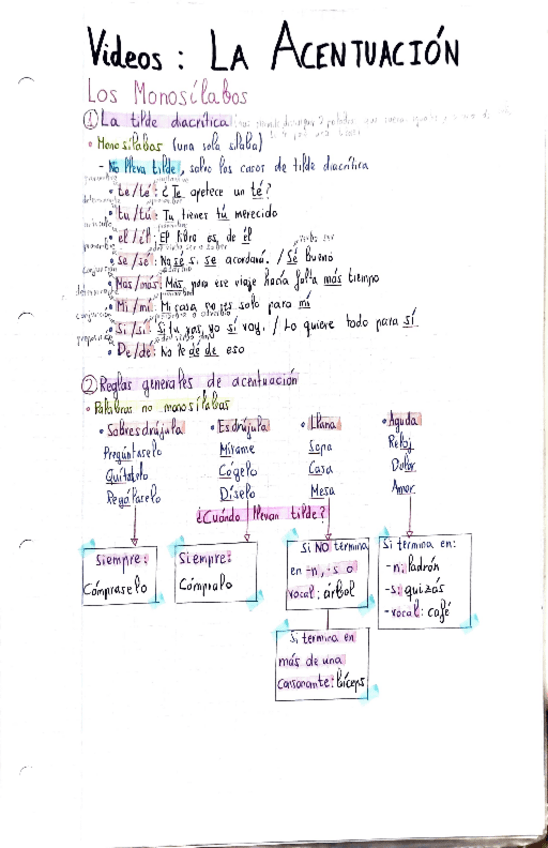 Videos: LA ACENTUACIÓN
Los Monosílabos
① La tilde diacrítica
• Monosílabos (una sola sílaba)
- No lleva tilde, salvo los casos de tilde diacrítica
• te/té: ¿Te apetece un té?
• tu/tú: Tu tienes tú merecido
• el/él: El libro es de él
• se/sé: No sé si se acordará. / Sé bueno
• Mas/más: Mas, para ese viaje hacía falta más tiempo
• Mi/mí: Mi casa no es solo para mí
• Si/sí: Si tu vas, yo sí voy. / Lo quiere todo para sí
• De/dé: No le dé de eso
② Reglas generales de acentuación
• Palabras no monosílabas
• Sobresdrújula • Esdrújula • Llana • Aguda
Pregúntaselo Mírame Sopa Reloj
Quítatelo Cógelo Casa Dolor
Regálaselo Díselo Mesa Amor
¿Cuándo llevan tilde?
Siempre:
Cómpraselo
Siempre:
Cómpralo
Si NO termina
en -n, -s o
vocal: árbol
Si termina en:
-n: Padrón
-s: quizás
-vocal: café
Si termina en
más de una
consonante: bíceps